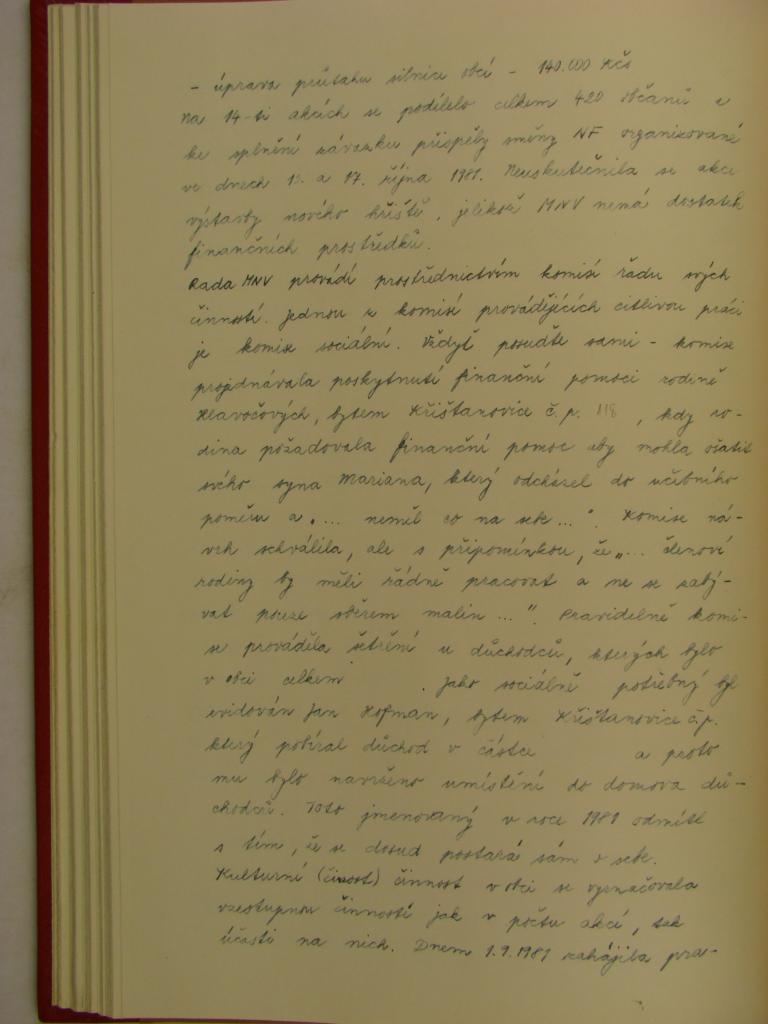 - úprava průtahu silnice obcí - 140.000 Kčs
Na 14-ti akcích se podílelo celkem 420 občanů a
ke splnění závazku přispěly směny NF organizované
ve dnech a 17. října 1981. Neuskutečnila se akce
výstavby nového hřiště, jelikož MNV nemá dostatek
finančních prostředků.
Rada MNV provádí prostřednictvím komisí řadu svých
činností. Jednou z komisí provádějících citlivou práci
je komise sociální. Vždyť posuďte sami - komise
projednávala poskytnutí finanční pomoci rodině
Hlavočových, bytem Křišťanovice č.p. 118, kdy ro-
dina požadovala finanční pomoc aby mohla ošatit
svého syna Mariana, který odcházel do učebního
poměru a „... neměl co na sebe...". Komise ná-
vrh schválila, ale s připomínkou, že „... členové
rodiny by měli řádně pracovat a ne se zabý-
vat pouze sběrem malin...". Pravidelně komi-
se prováděla šetření u důchodců, kterých bylo
v obci celkem . Jako sociálně potřebný byl
evidován Jan Hofman, bytem Křišťanovice č.p.
který pobíral důchod v částce a proto
mu bylo navrženo umístění do domova dů-
chodců. Toto jmenovaný v roce 1981 odmítl
s tím, že se dosud postará sám o sebe.
Kulturní (činost) činnost v obci se vyznačovala
vzestupnou činností jak v počtu akcí, tak
účasti na nich. Dnem 1.9.1981 zahájila pra-